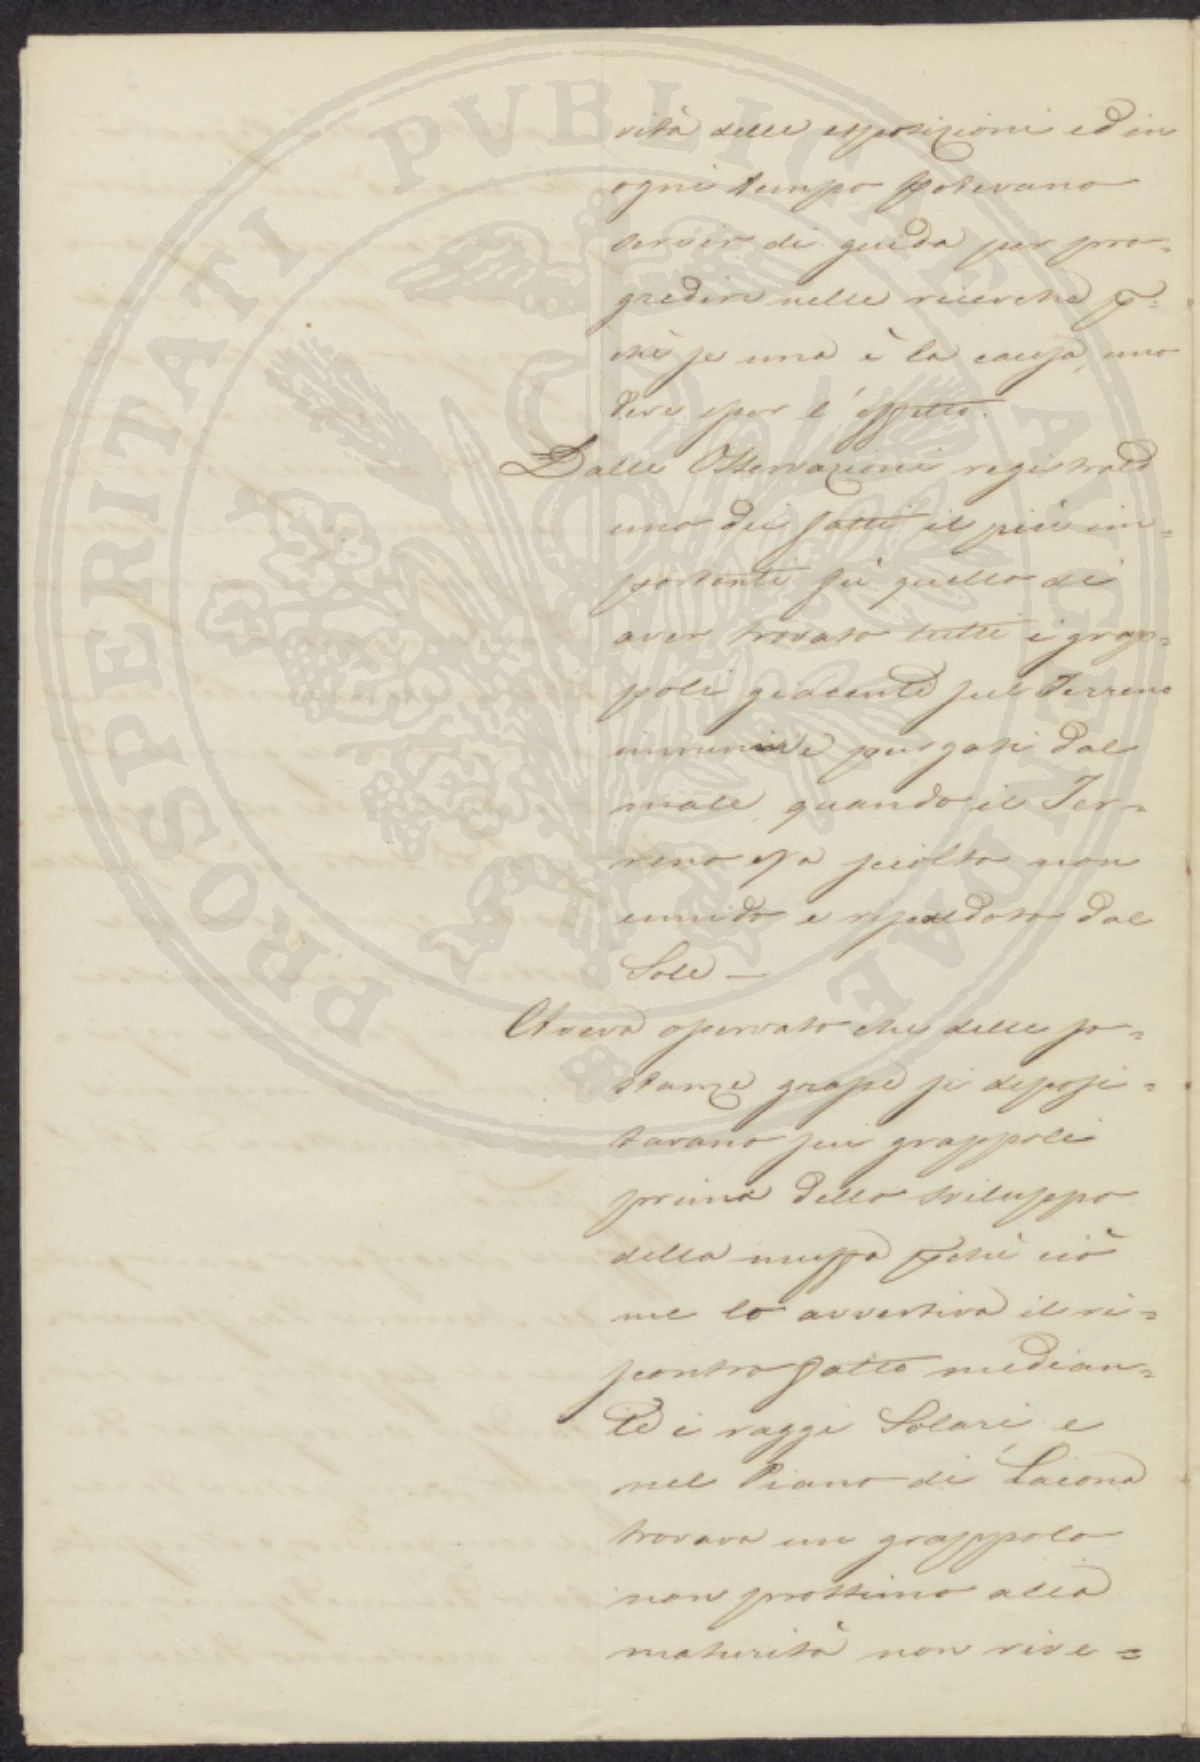 PROSPERITATI PVBLICAE AVGENDAE
rità delle esposizioni ed in
ogni tempo potevano
servir di guida per pro=
gredire nelle ricerche p:
chè se una è la causa, uno
deve esser l'effetto.
Dalle Osservazioni registrate
uno dei fatti il più im=
portanti fù quello di
aver trovato tutti i grap=
poli giacenti sul Terreno
immuni e purgati dal
male, quando il Ter=
reno era sciolto non
umido e riscaldato dal
Sole —
Aveva osservato che delle so=
stanze grasse si deposi=
tavano sui grappoli
prima dello sviluppo
della muffa pchè ciò
me lo avvertiva il ri=
scontro fatto median=
te i raggi Solari, e
nel Piano di Lacona
trovava un grappolo
non prossimo alla
maturità non rive=